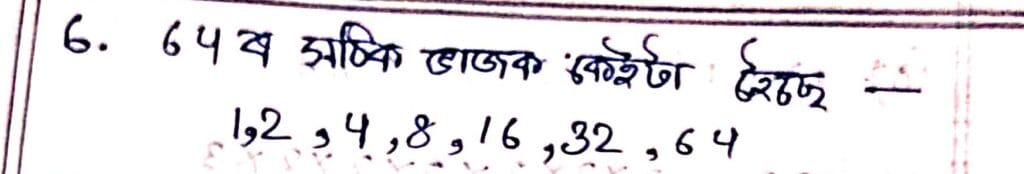 6. 64ৰ সঠিক ভাজক কেইটা হৈছে —
1,2, 4, 8, 16, 32, 64